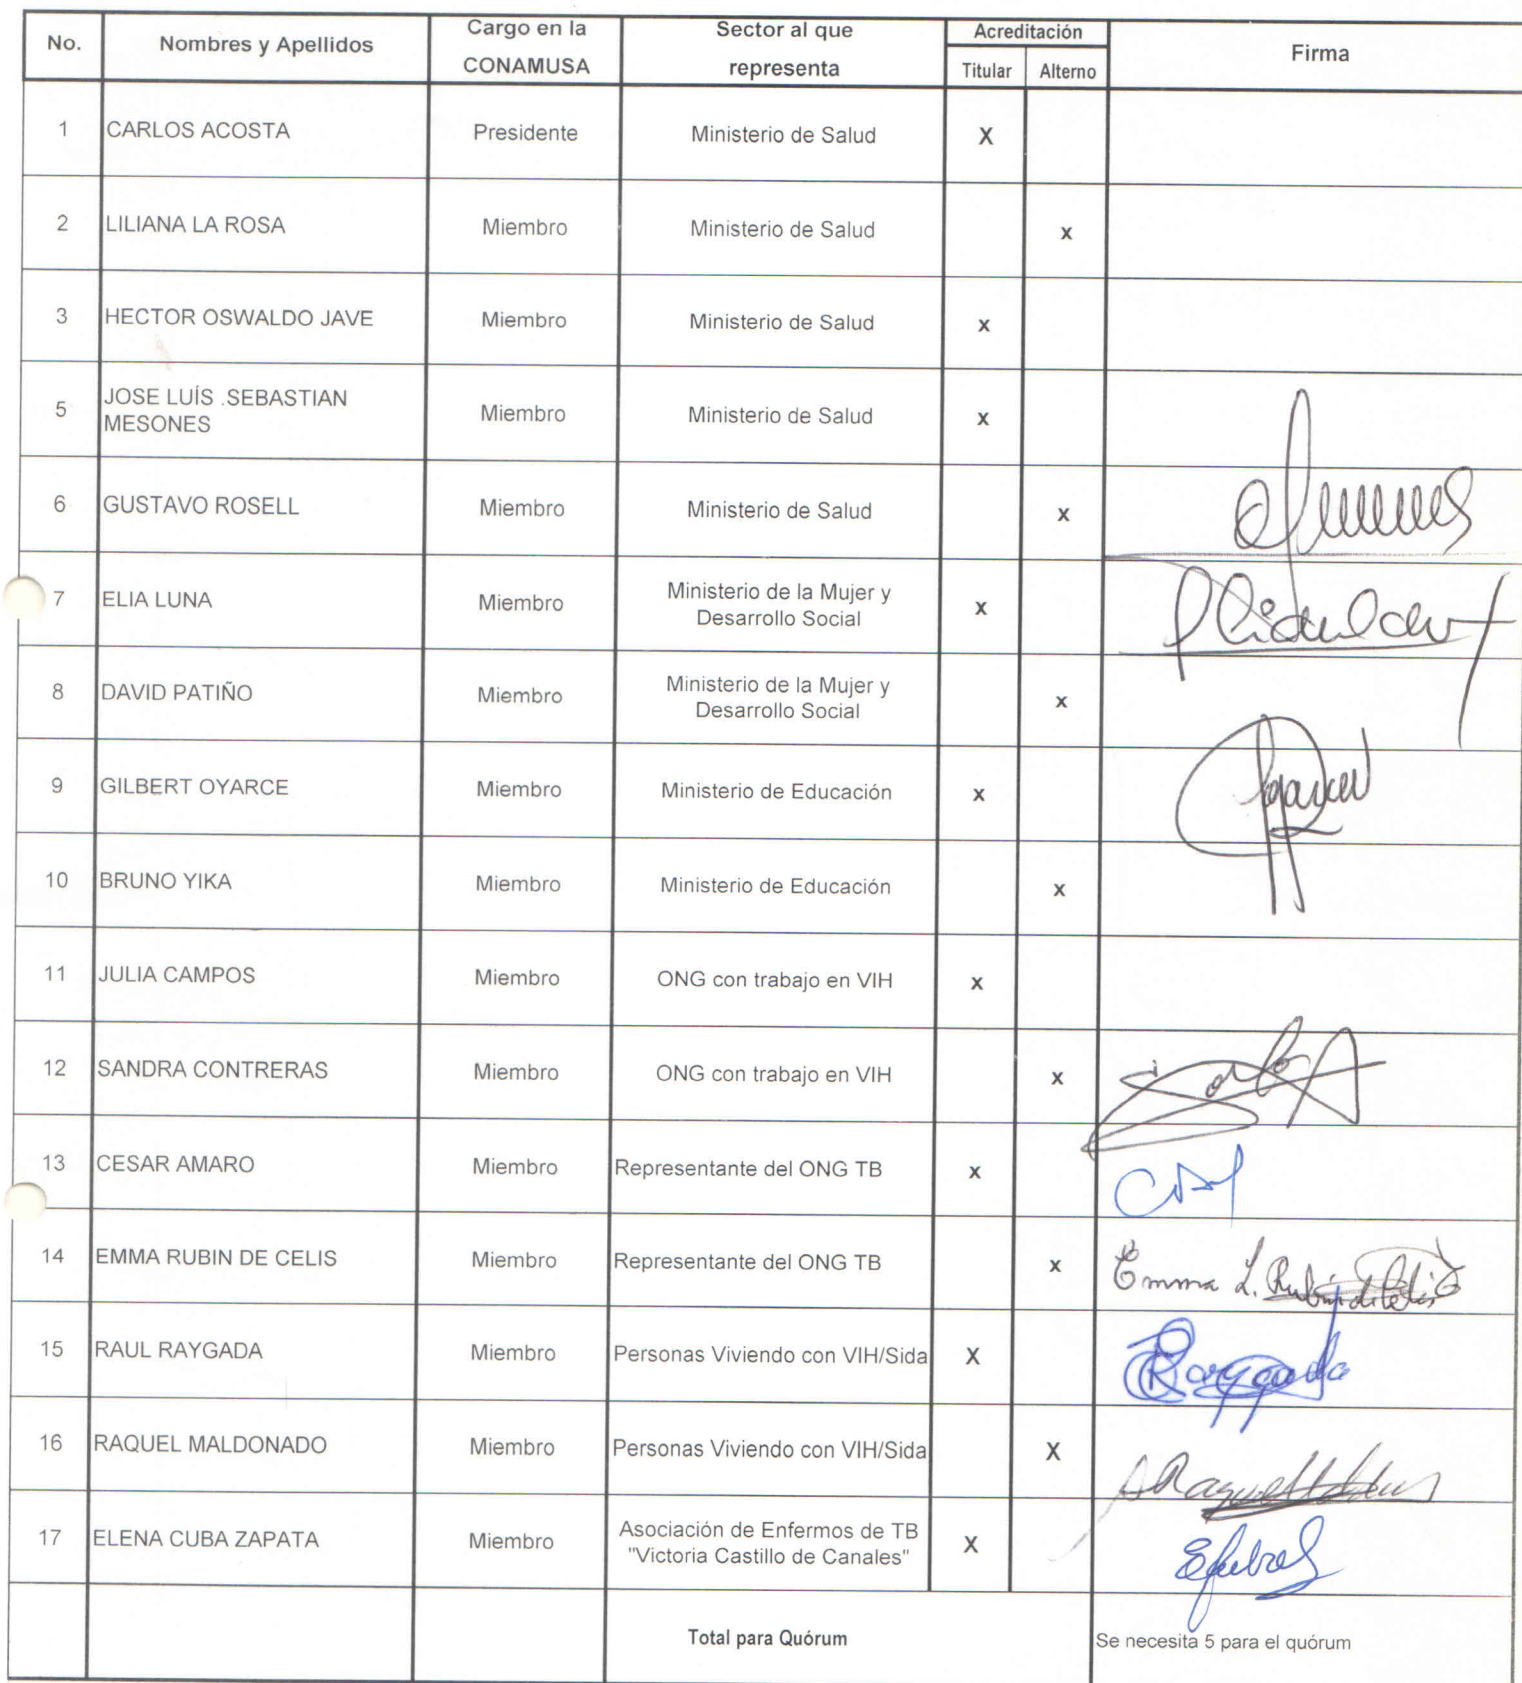 No. Nombres y Apellidos Cargo en la CONAMUSA Sector al que representa Acreditación Titular Alterno Firma
1 CARLOS ACOSTA Presidente Ministerio de Salud X
2 LILIANA LA ROSA Miembro Ministerio de Salud x
3 HECTOR OSWALDO JAVE Miembro Ministerio de Salud x
5 JOSE LUÍS .SEBASTIAN MESONES Miembro Ministerio de Salud x
6 GUSTAVO ROSELL Miembro Ministerio de Salud x
7 ELIA LUNA Miembro Ministerio de la Mujer y Desarrollo Social x
8 DAVID PATIÑO Miembro Ministerio de la Mujer y Desarrollo Social x
9 GILBERT OYARCE Miembro Ministerio de Educación x
10 BRUNO YIKA Miembro Ministerio de Educación x
11 JULIA CAMPOS Miembro ONG con trabajo en VIH x
12 SANDRA CONTRERAS Miembro ONG con trabajo en VIH x
13 CESAR AMARO Miembro Representante del ONG TB x
14 EMMA RUBIN DE CELIS Miembro Representante del ONG TB x Emma L. Rubin de Celis
15 RAUL RAYGADA Miembro Personas Viviendo con VIH/Sida X Raygada
16 RAQUEL MALDONADO Miembro Personas Viviendo con VIH/Sida X
17 ELENA CUBA ZAPATA Miembro Asociación de Enfermos de TB "Victoria Castillo de Canales" X
Total para Quórum Se necesita 5 para el quórum